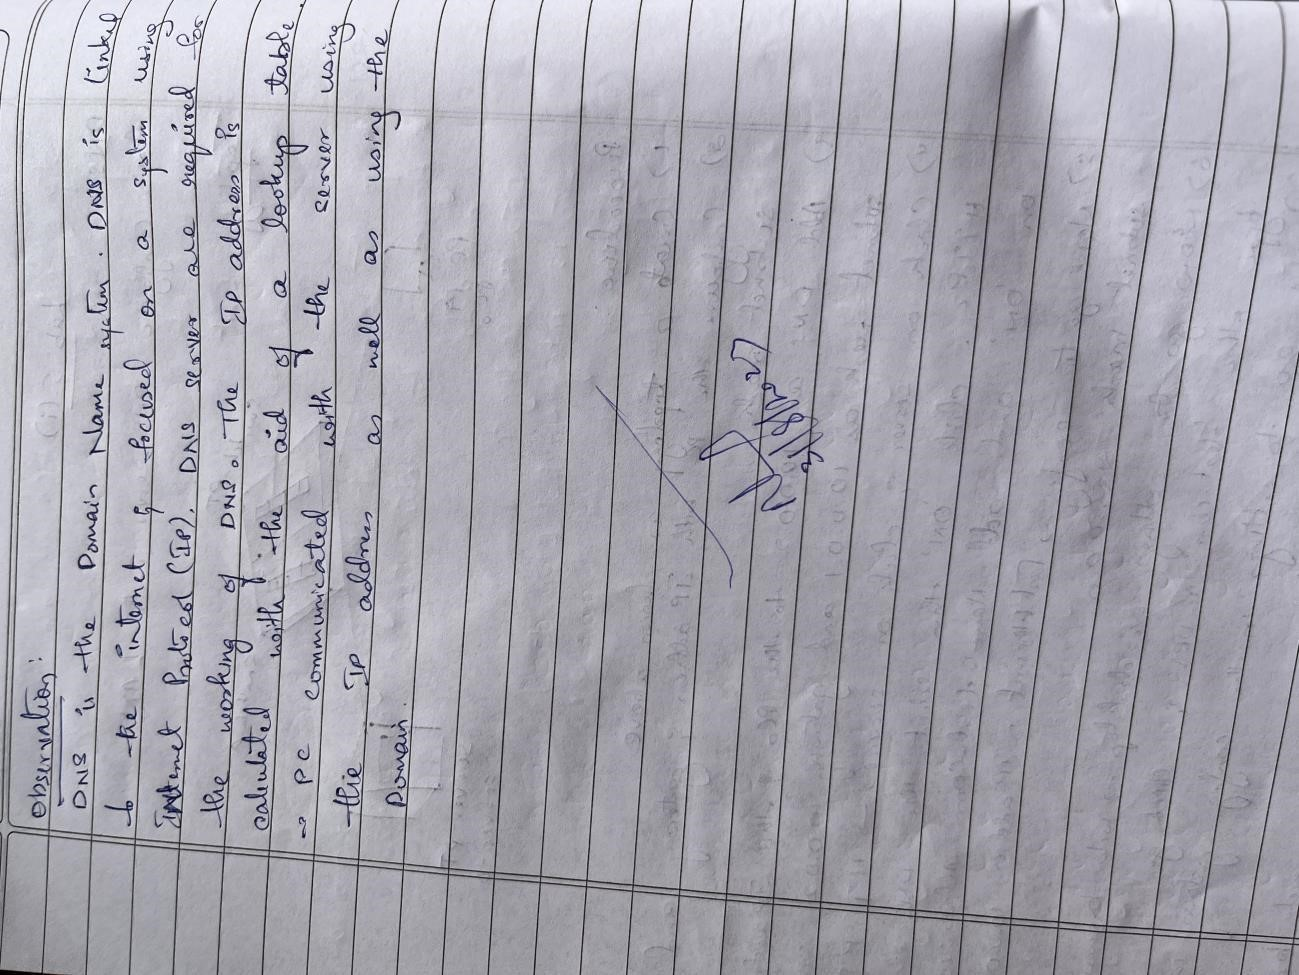 Observation:
DNS is the Domain Name system. DNS is linked
to the internet & focused on a system using
Internet Protocol (IP). DNS server are required for
the working of DNS. The IP address is
calculated with the aid of a lookup table.
→ PC communicated with the server using
the IP address as well as using the
Domain.